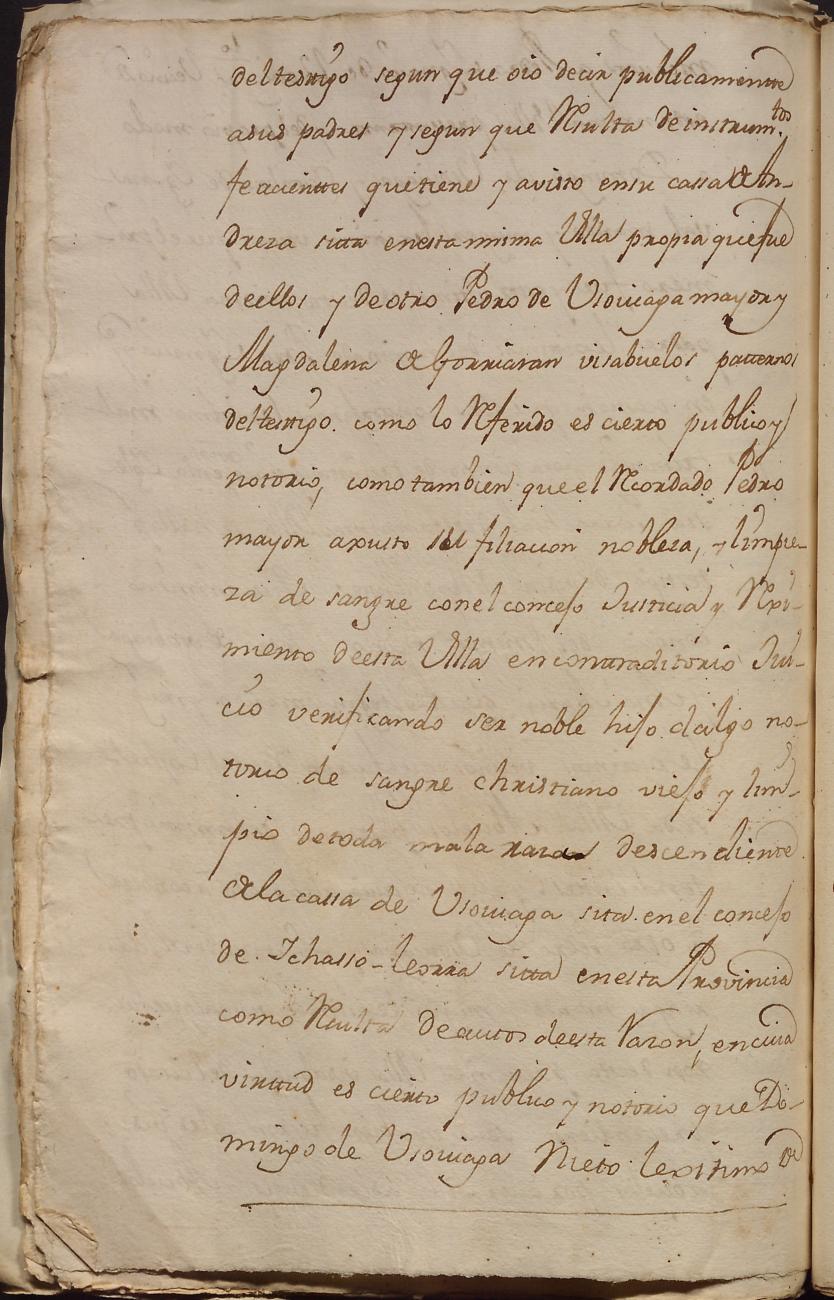 del testigo segun que oio decir publicamente
a sus padres y segun que Resulta de instrum.tos
feacientes que tiene y a visto en su cassa de An-
dreza sitta en esta misma Villa propia que fue
de ellos y de otro Pedro de Usoviaga mayor y
Magdalena de Gorriaran visabuelos paternos
del testigo. como lo Referido es cierto publico y
notorio, como tambien que el Recordado Pedro
mayor apusto su filiacion nobleza, y limpie-
za de sangre con el concejo Justicia y Regi-
miento de esta Villa en contraditorio Jui-
cio verificando ser noble hijo dalgo no-
torio de sangre christiano viejo y lim-
pio de toda mala raza descendiente
de la cassa de Usoviaga sita en el concejo
de Ichasso-leorra sitta en esta Provincia
como Resulta de autos de esta Razon, en cuia
virtud es cierto publico y notorio que Do-
mingo de Usoviaga Nieto lexitimo de